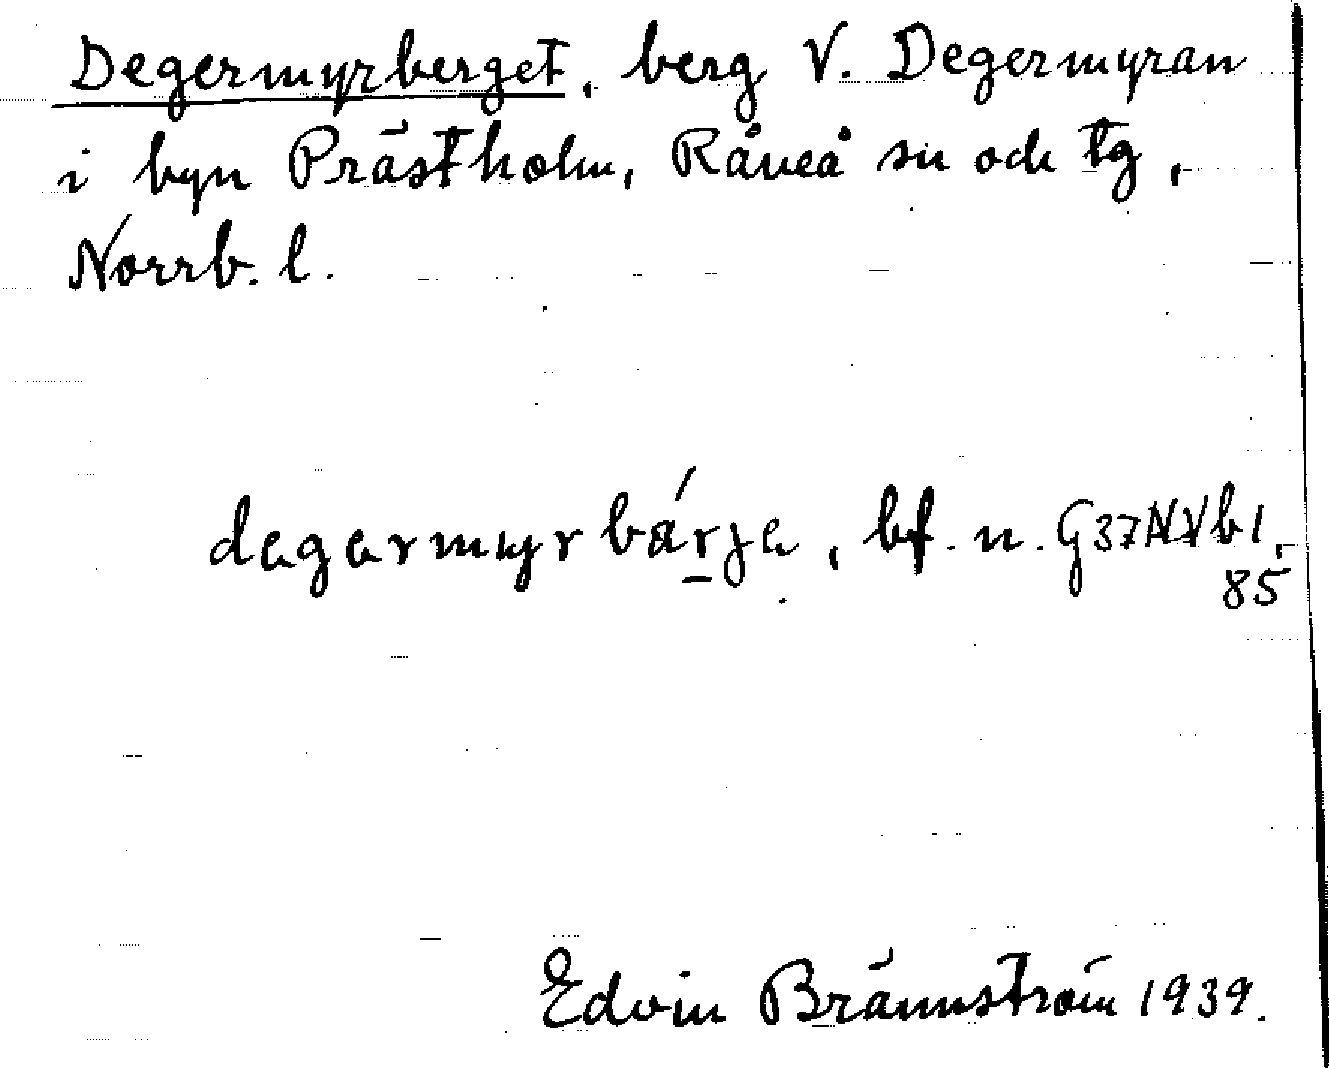 Degermyrberget, berg V. Degermyran
i byn Prästholm, Råneå sn och tg,
Norrb. l.
degərmyrbárja, bf. n. G37NVb1,
85
Edvin Brännström 1939.